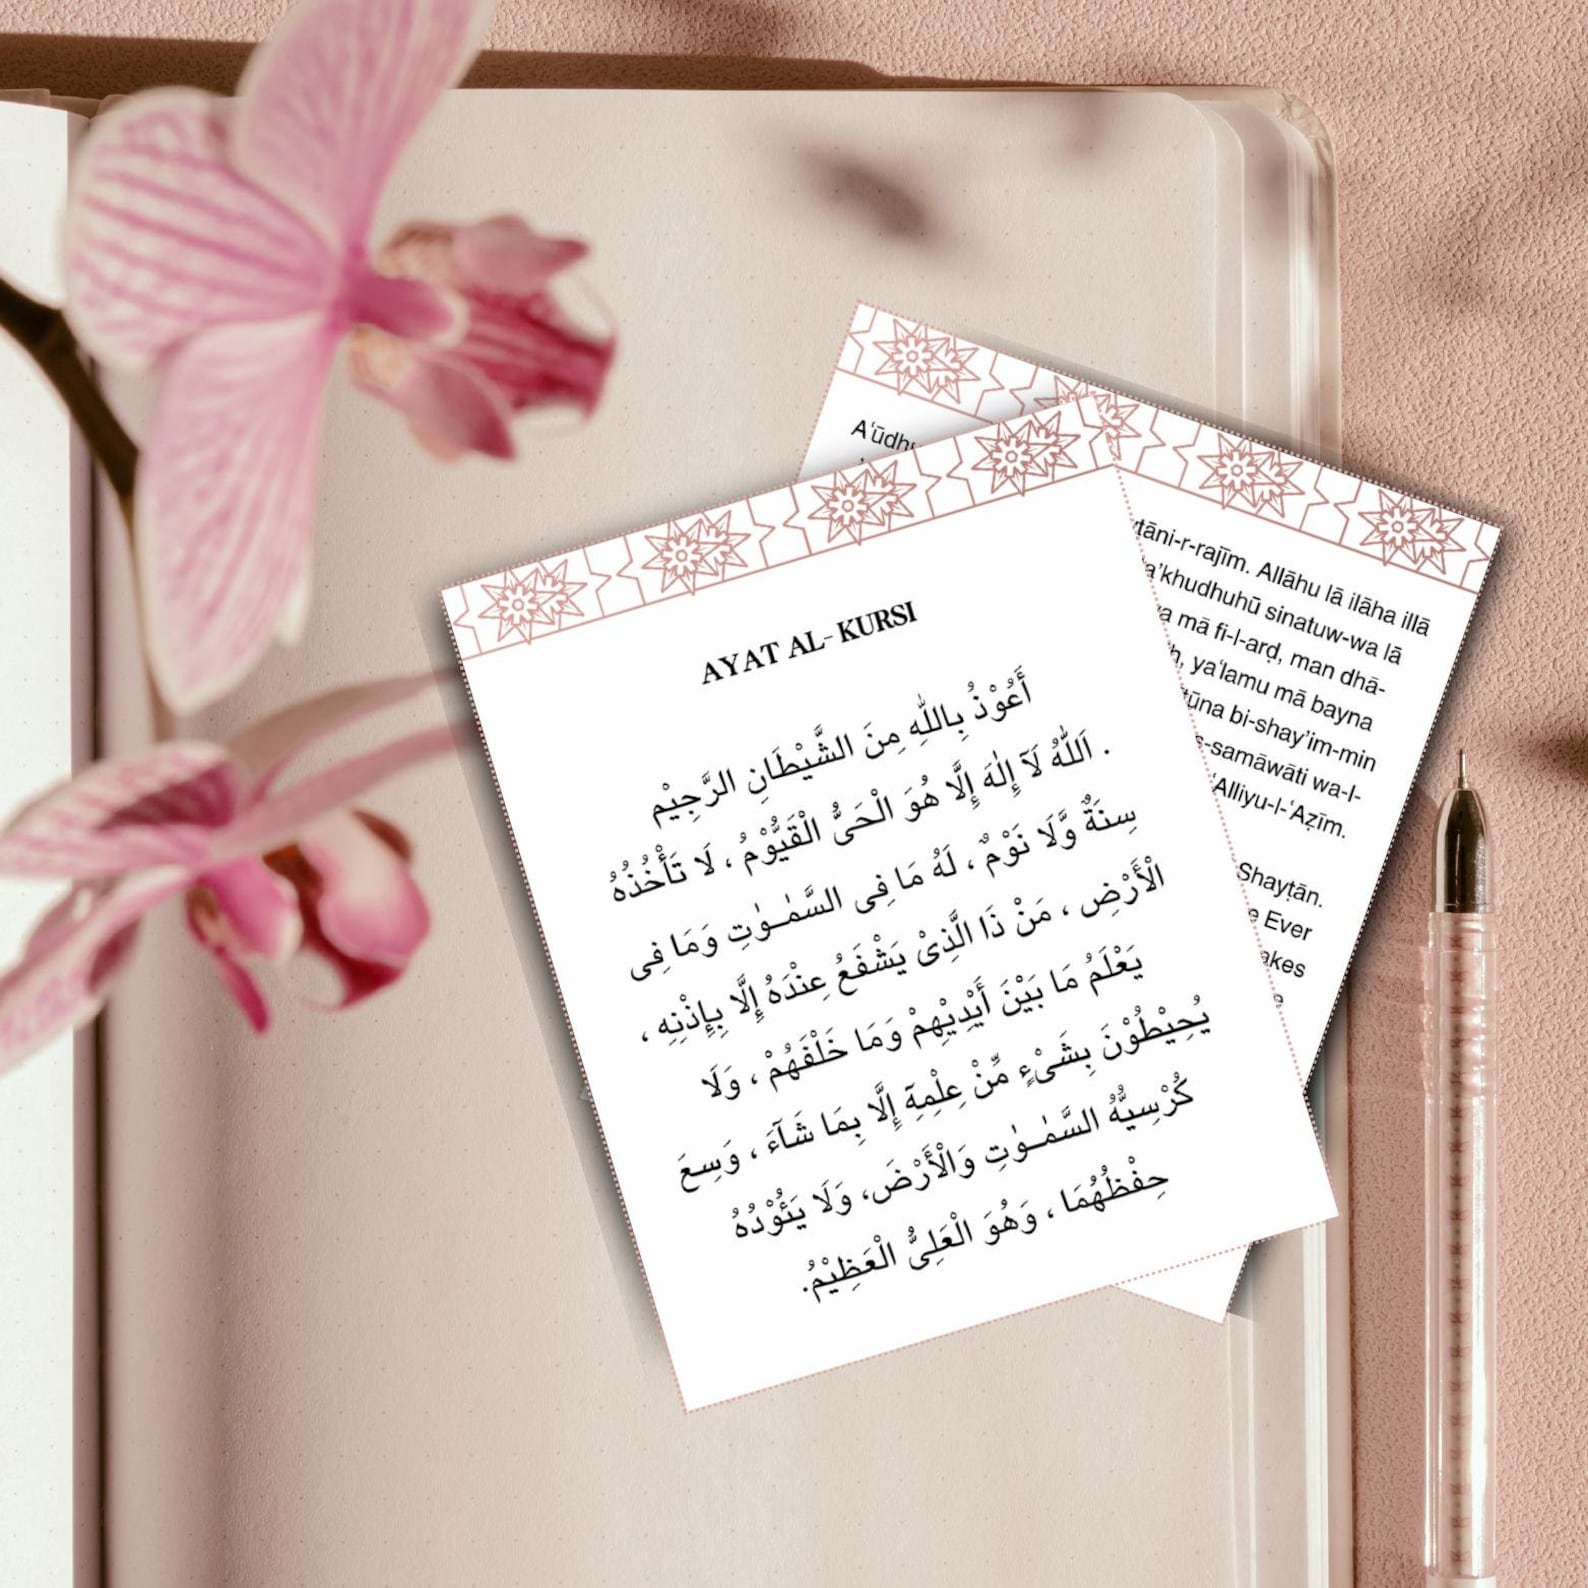 AYAT AL-KURSI
أَعُوْذُ بِاللّٰهِ مِنَ الشَّيْطَانِ الرَّجِيْم
. اَللّٰهُ لَآ إِلٰهَ إِلَّا هُوَ الْحَىُّ الْقَيُّوْمُ ، لَا تَأْخُذُهُ
سِنَةٌ وَّلَا نَوْمٌ ، لَهُ مَا فِى السَّمٰـوٰتِ وَمَا فِى
الْأَرْضِ ، مَنْ ذَا الَّذِىْ يَشْفَعُ عِنْدَهُ إِلَّا بِإِذْنِهِ ،
يَعْلَمُ مَا بَيْنَ أَيْدِيْهِمْ وَمَا خَلْفَهُمْ ، وَلَا
يُحِيْطُوْنَ بِشَىْءٍ مِّنْ عِلْمِهٓ إِلَّا بِمَا شَآءَ ، وَسِعَ
كُرْسِيُّهُ السَّمٰـوٰتِ وَالْأَرْضَ، وَلَا يَئُوْدُهُ
حِفْظُهُمَا ، وَهُوَ الْعَلِىُّ الْعَظِيْمُ.
-r-rajīm. Allāhu lā ilāha illā
sinatuw-wa lā
mā fi-l-arḍ, man dhā-
ya‘lamu mā bayna
bi-shay’im-min
-samāwāti wa-l-
‘Alliyu-l-‘Aẓīm.
Shayṭān.
Ever